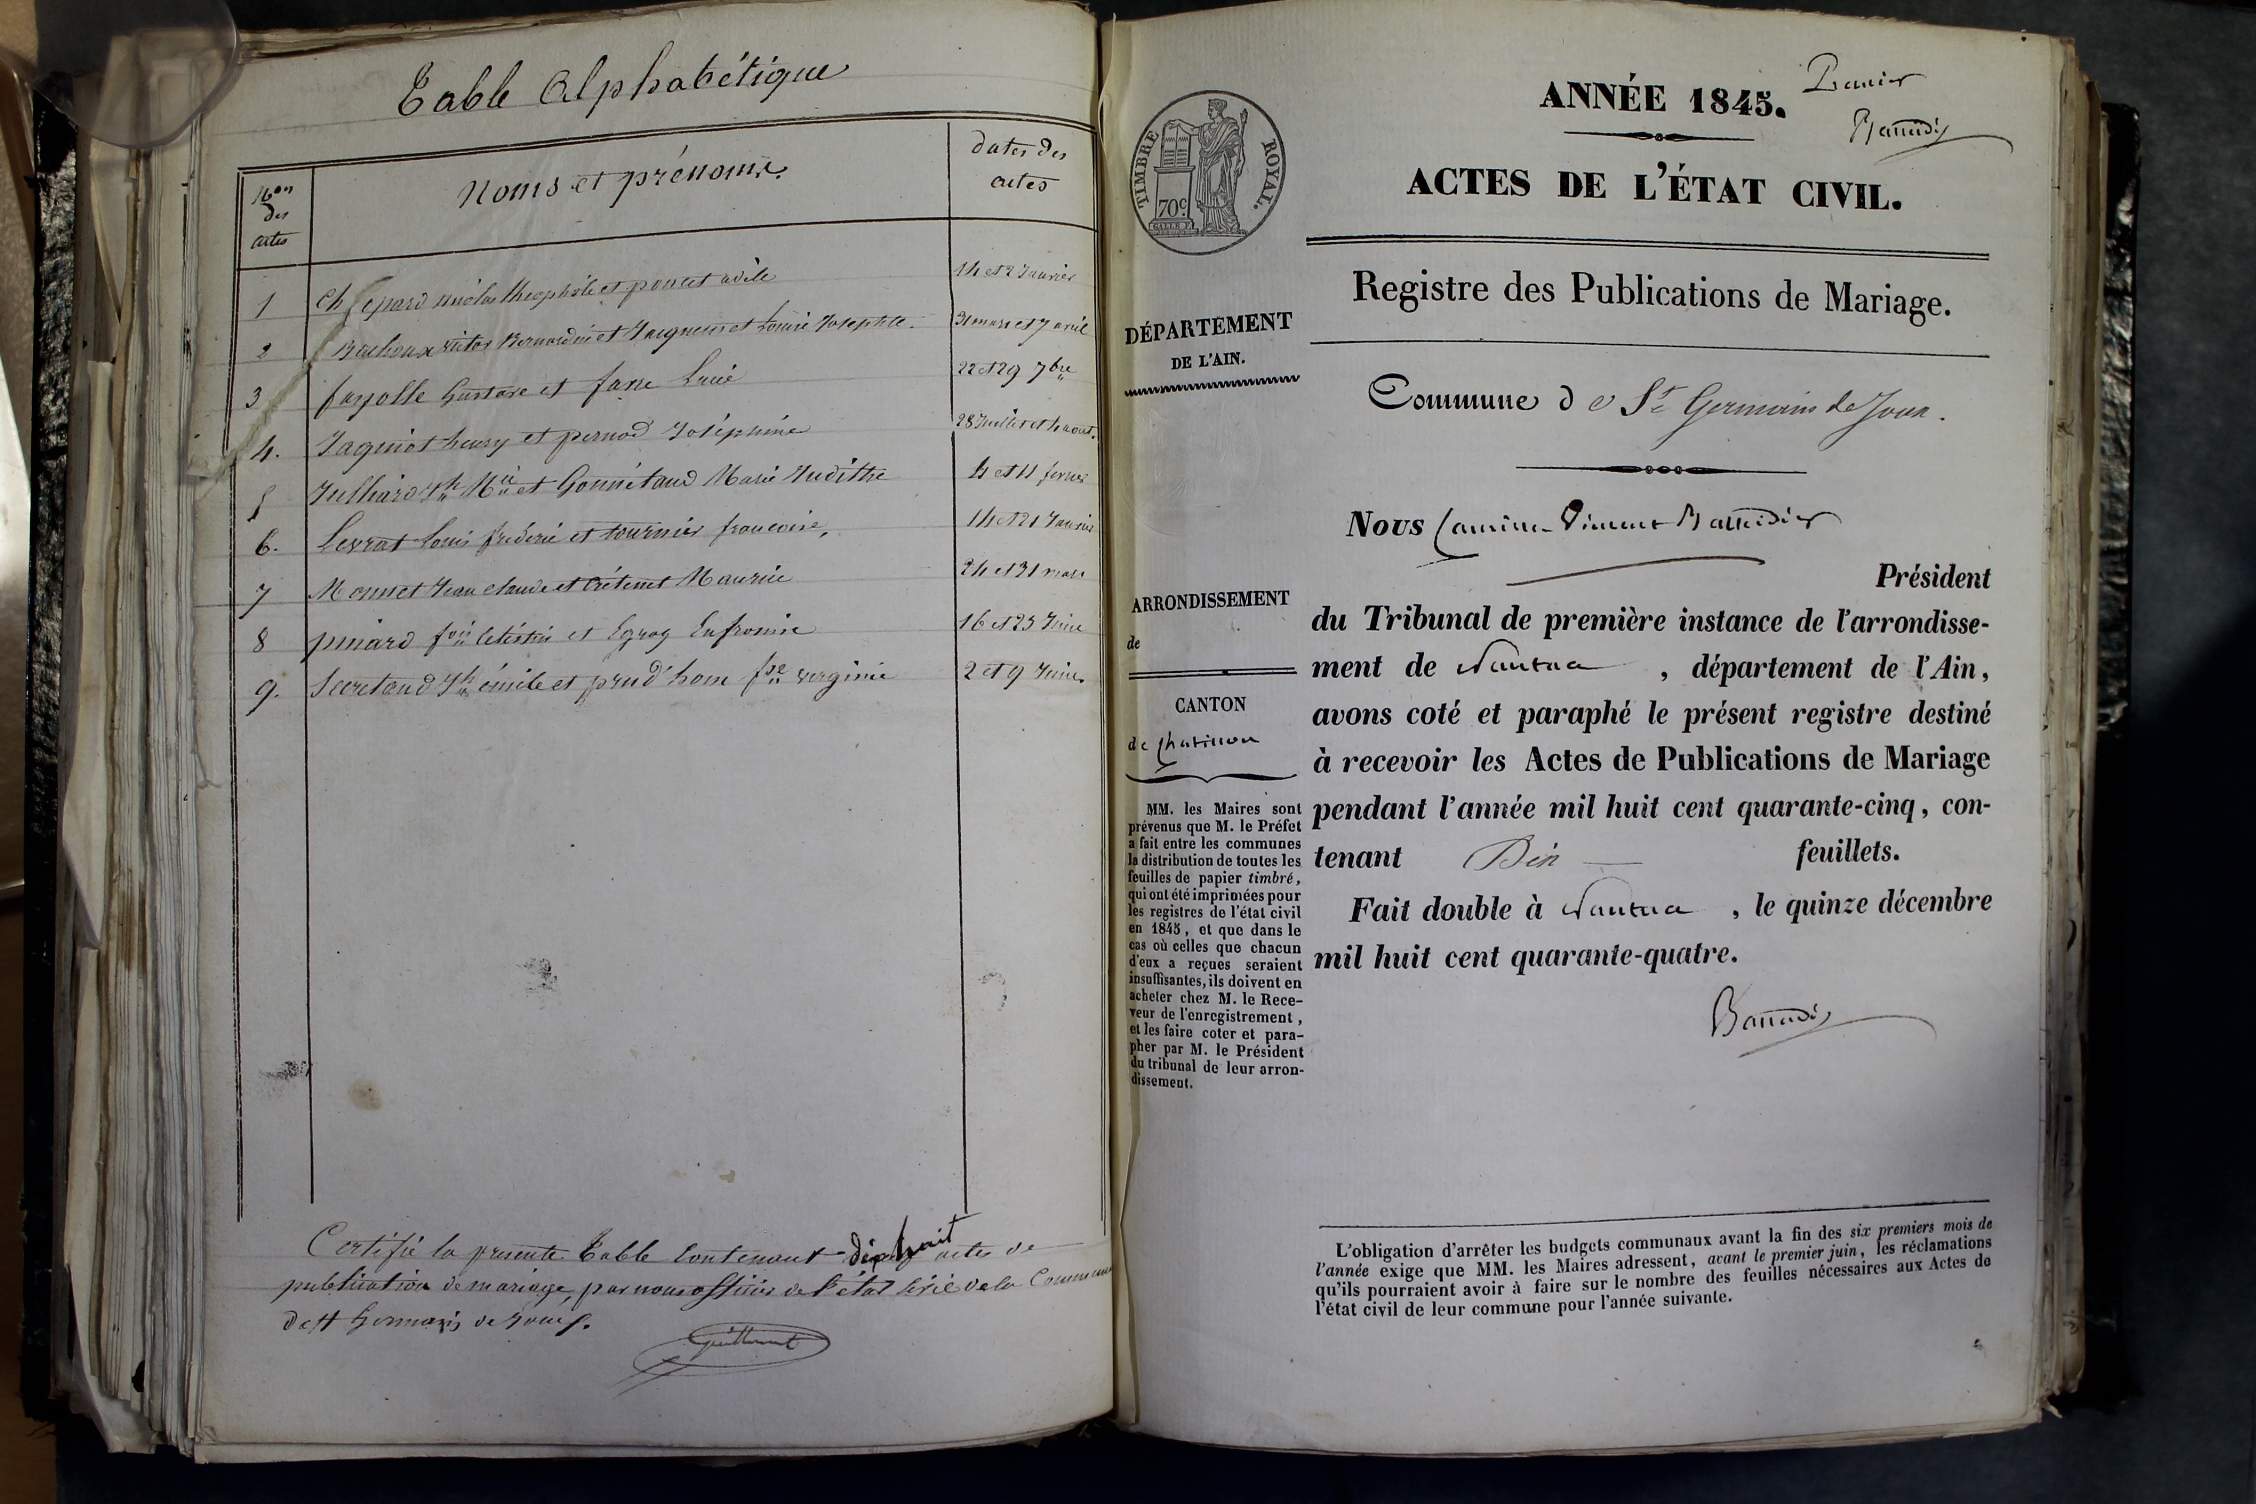 Table Alphabétique
Nos des actes
Noms et prénoms
dates des actes
1 nicolas théophile et poncet adèle 14 et 21 Janvier
2 victor Bernardin et Louise Josephte. 31 mars et 7 avril
3 fayolle Gustave et Lucie 22 et 29 7bre
4. Jaquinot henry et pernod Joséphine 28 Juillet et 4 aout.
5 Julliard Jh Mie et Gonnétand Marie Judithe 4 et 11 fevrier
6. Levrat Louis fréderic et tournier francoise, 14 et 21 Janvier
7 Monnet Jean claude et Crétenet Maurice 24 et 31 mars
8 piniard et Egroz Eufrosine 16 et 23 Juin
9. Secretand Jh émile et prud'hom fse verginie 2 et 9 Juin.
Certifié la presente Table Contenant dix huit actes de
publication de mariage, par nous officier de l'état Civil de la Commune
de St Germain de Joux.
ANNÉE 1845.
ACTES DE L'ÉTAT CIVIL.
TIMBRE ROYAL.
70c
Registre des Publications de Mariage.
DÉPARTEMENT
DE L'AIN.
Commune de St Germain de Joux.
Nous Vincent
Président
ARRONDISSEMENT
de
du Tribunal de première instance de l'arrondisse-
ment de Nantua, département de l'Ain,
avons coté et paraphé le présent registre destiné
à recevoir les Actes de Publications de Mariage
pendant l'année mil huit cent quarante-cinq, con-
tenant Dix feuillets.
Fait double à Nantua, le quinze décembre
mil huit cent quarante-quatre.
CANTON
de Chatillon
MM. les Maires sont
prévenus que M. le Préfet
a fait entre les communes
la distribution de toutes les
feuilles de papier timbré,
qui ont été imprimées pour
les registres de l'état civil
en 1845, et que dans le
cas où celles que chacun
d'eux a reçues seraient
insuffisantes, ils doivent en
acheter chez M. le Rece-
veur de l'enregistrement,
et les faire coter et para-
pher par M. le Président
du tribunal de leur arron-
dissement.
L'obligation d'arrêter les budgets communaux avant la fin des six premiers mois de
l'année exige que MM. les Maires adressent, avant le premier juin, les réclamations
qu'ils pourraient avoir à faire sur le nombre des feuilles nécessaires aux Actes de
l'état civil de leur commune pour l'année suivante.